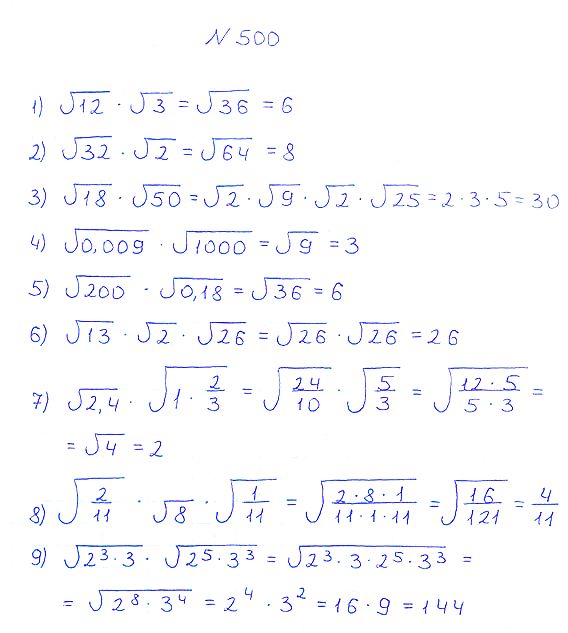 N 500
1) √12 · √3 = √36 = 6
2) √32 · √2 = √64 = 8
3) √18 · √50 = √2 · √9 · √2 · √25 = 2 · 3 · 5 = 30
4) √0,009 · √1000 = √9 = 3
5) √200 · √0,18 = √36 = 6
6) √13 · √2 · √26 = √26 · √26 = 26
7) √2,4 · √(1 · 2/3) = √(24/10) · √(5/3) = √((12 · 5)/(5 · 3)) =
= √4 = 2
8) √(2/11) · √8 · √(1/11) = √((2 · 8 · 1)/(11 · 1 · 11)) = √(16/121) = 4/11
9) √(2³ · 3) · √(2⁵ · 3³) = √(2³ · 3 · 2⁵ · 3³) =
= √(2⁸ · 3⁴) = 2⁴ · 3² = 16 · 9 = 144